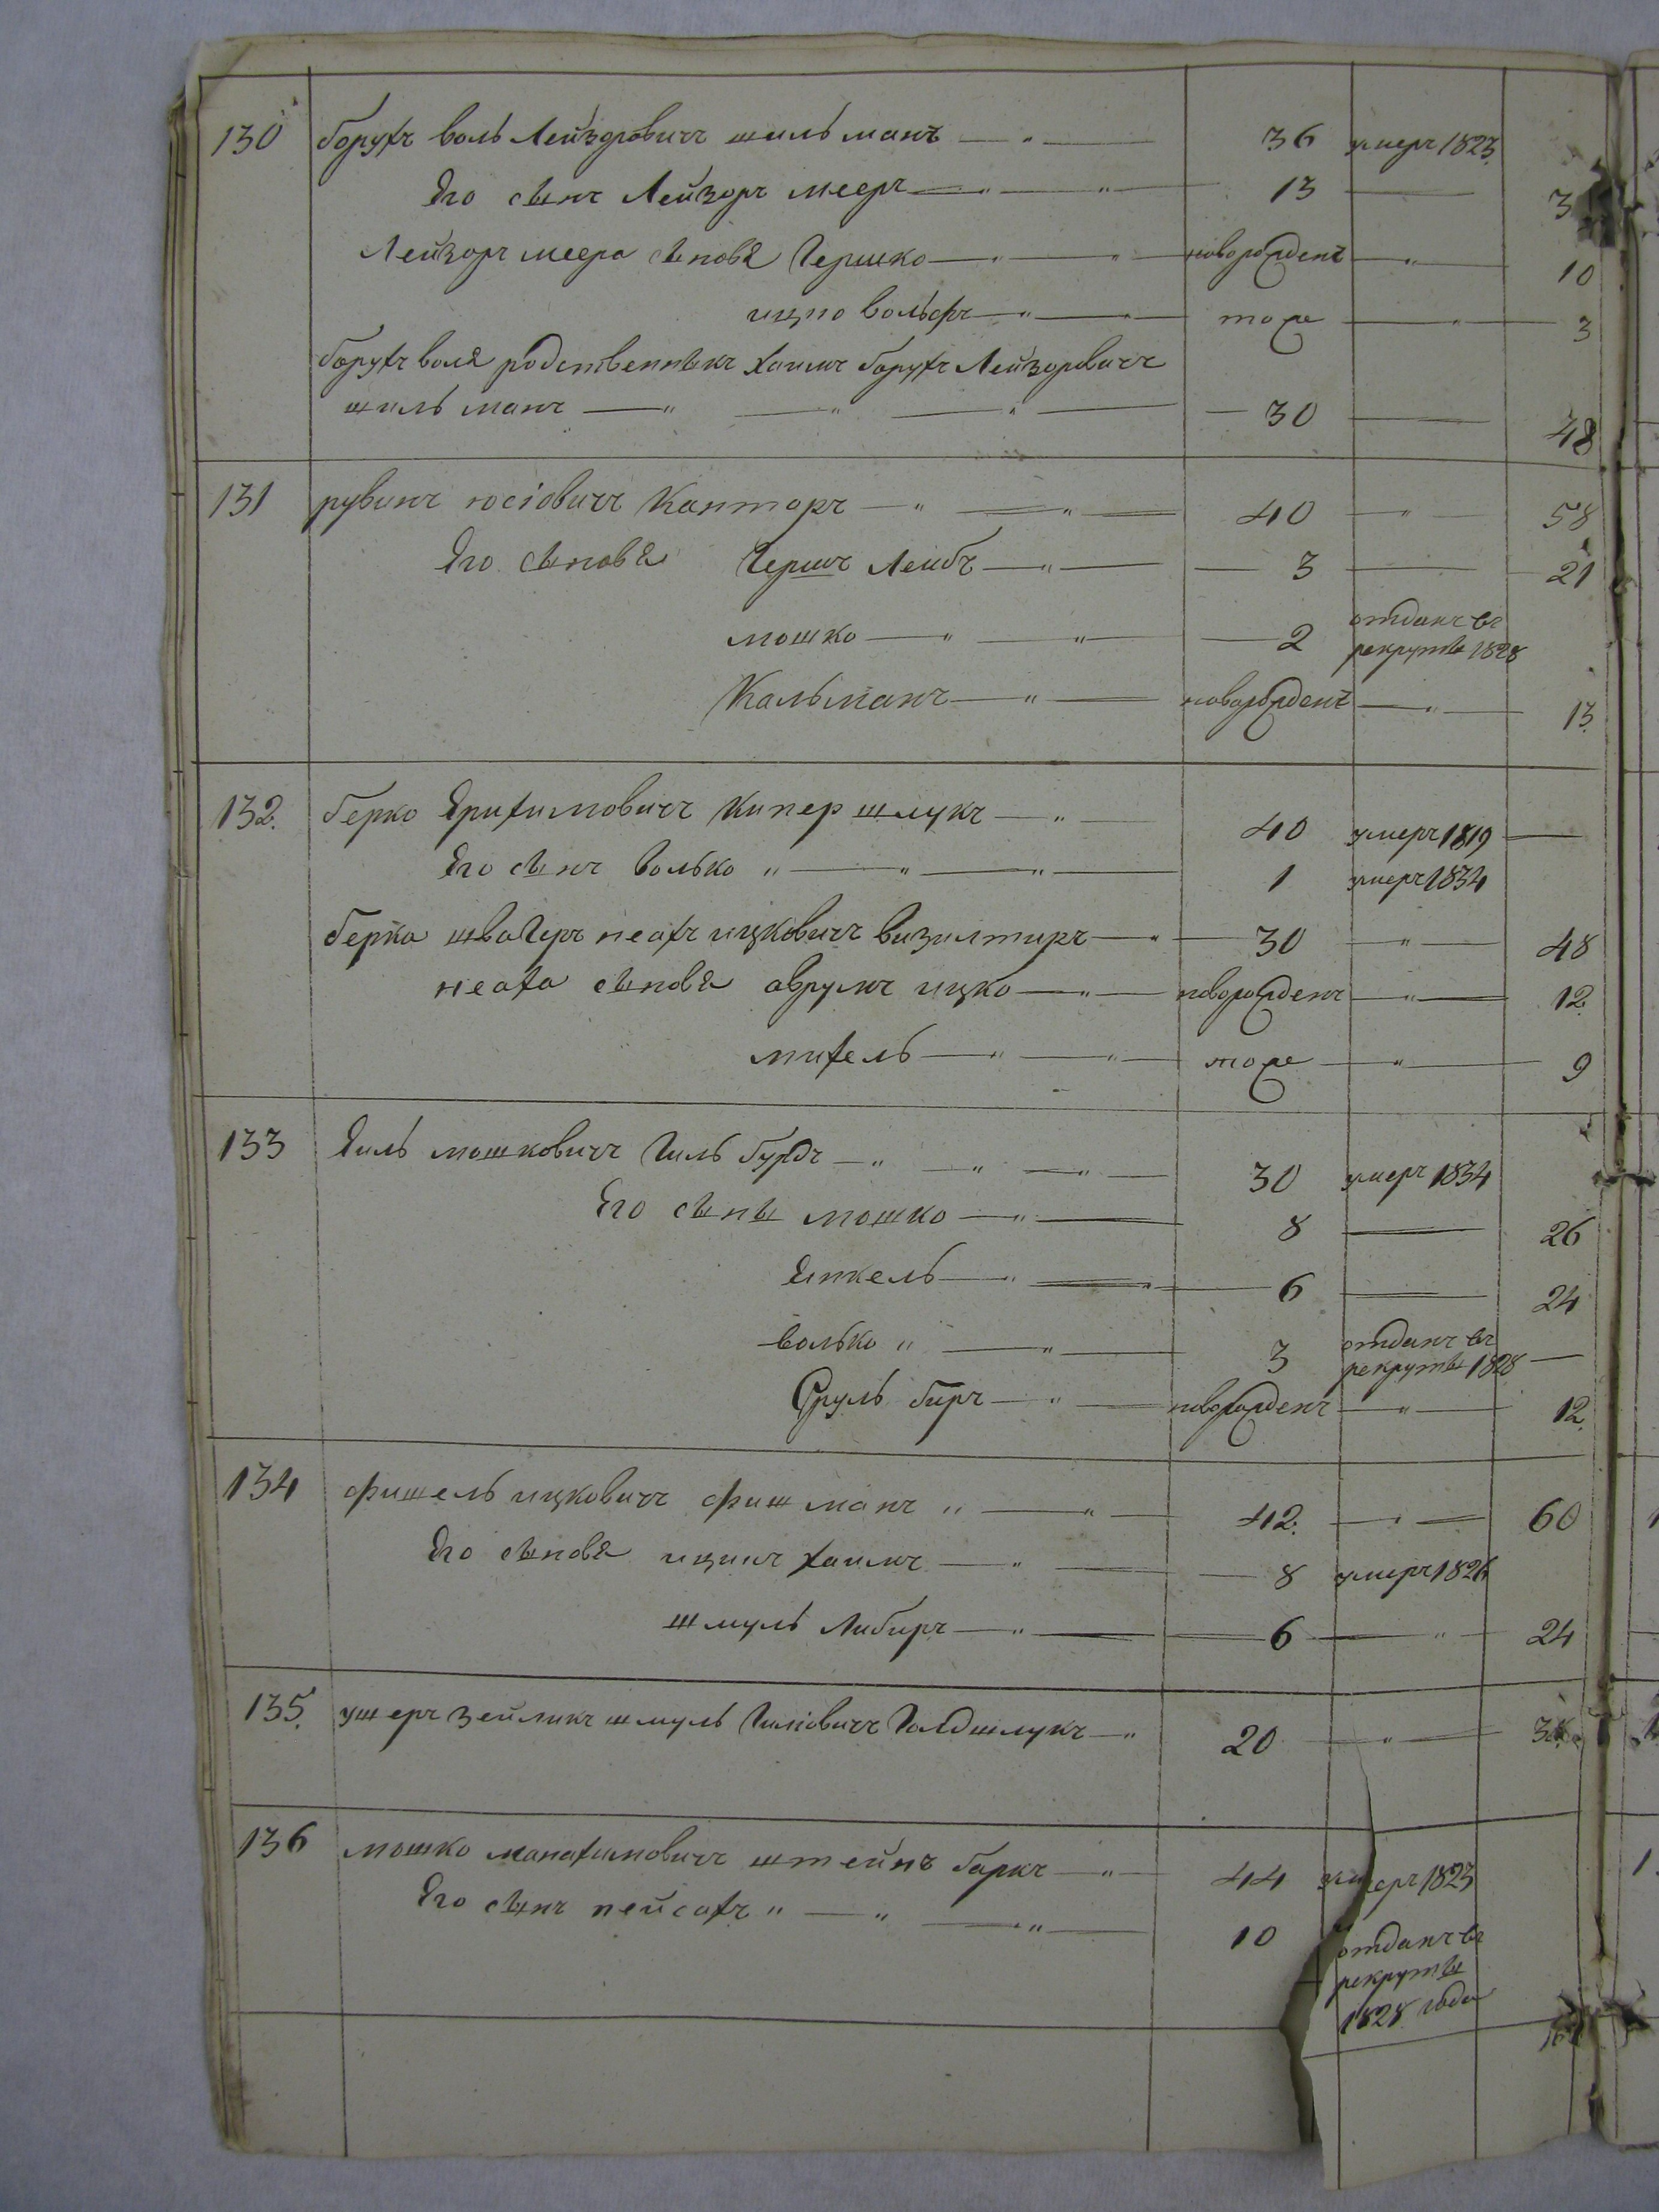 130 борухъ воль Лейзоровичъ шильманъ 36 умеръ 1823
Его сынъ Лейзоръ мееръ 13 3
Лейзоръ меера сыновя Гершко новорожденъ 10
ицко вольфъ тоже 3
борухъ воля родственныкъ хаимъ борухъ Лейзоровичъ
шильманъ 30 48
131 рувинъ юсіовичъ Канторъ 40 58
Его сыновя Гершъ Лейбъ 3 21
мошко 2 отданъ въ
рекруты 1828
Кальманъ новорожденъ 13
132. берко Ерихимовичъ Кипершлукъ 40 умеръ 1819
Его сынъ волько 1 умеръ 1834
берка швагеръ неахъ ицковичъ визилтиръ 30 48
неаха сыновя аврумъ ицко новорожденъ 12
михель тоже 9
133 Еиль мошковичъ Гильбурдъ 30 умеръ 1834
Его сыны мошко 8 26
Янкель 6 24
волько 3 отданъ въ
рекруты 1828
Сруль биръ новорожденъ 12
134 фишель ицковичъ фишманъ 42. 60
Его сыновя ицикъ хаимъ 8 умеръ 1826
шмуль Либиръ 6 24
135. ушеръ зейликъ шмуль Гиліовичъ Голдшлукъ 20 38
136 мошко манахимовичъ штейнъбаркъ 44 умеръ 1823
Его сынъ пейсахъ 10 отданъ въ
рекруты
1828 года